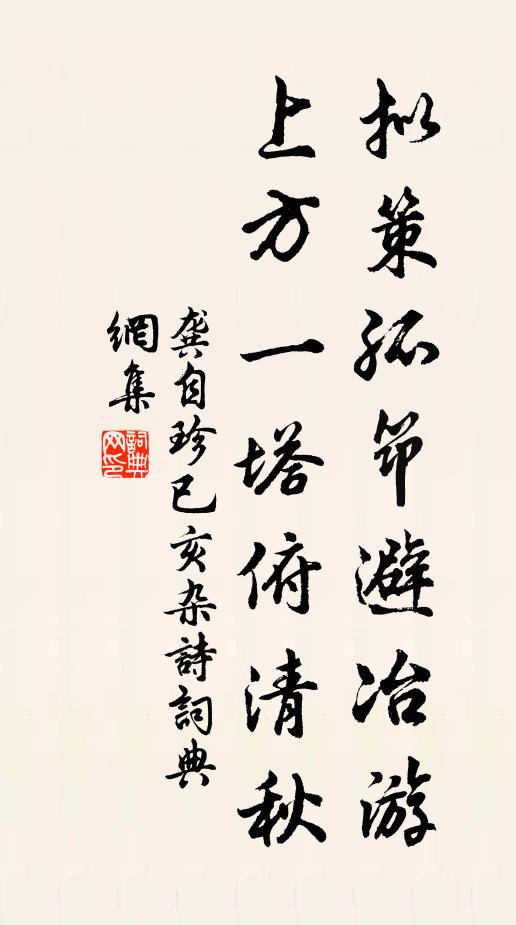 拟策孤筇避冶游
上方一塔俯清秋
龚自珍已亥杂詩詞典
網集
詞典
网印